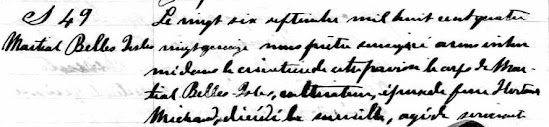 S 49
Martial Belles Isles
Le vingt six septembre mil huit cent quatre
vingt quinze nous prêtre soussigné avons inhu
mé dans le cimetière de cette paroisse le corps de Mar
tial Belles Isles, cultivateur, époux de feue
Michaud, décédé la veille, agé de soixante